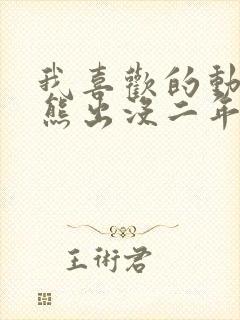 我喜歡的動
熊出沒二年
王術君